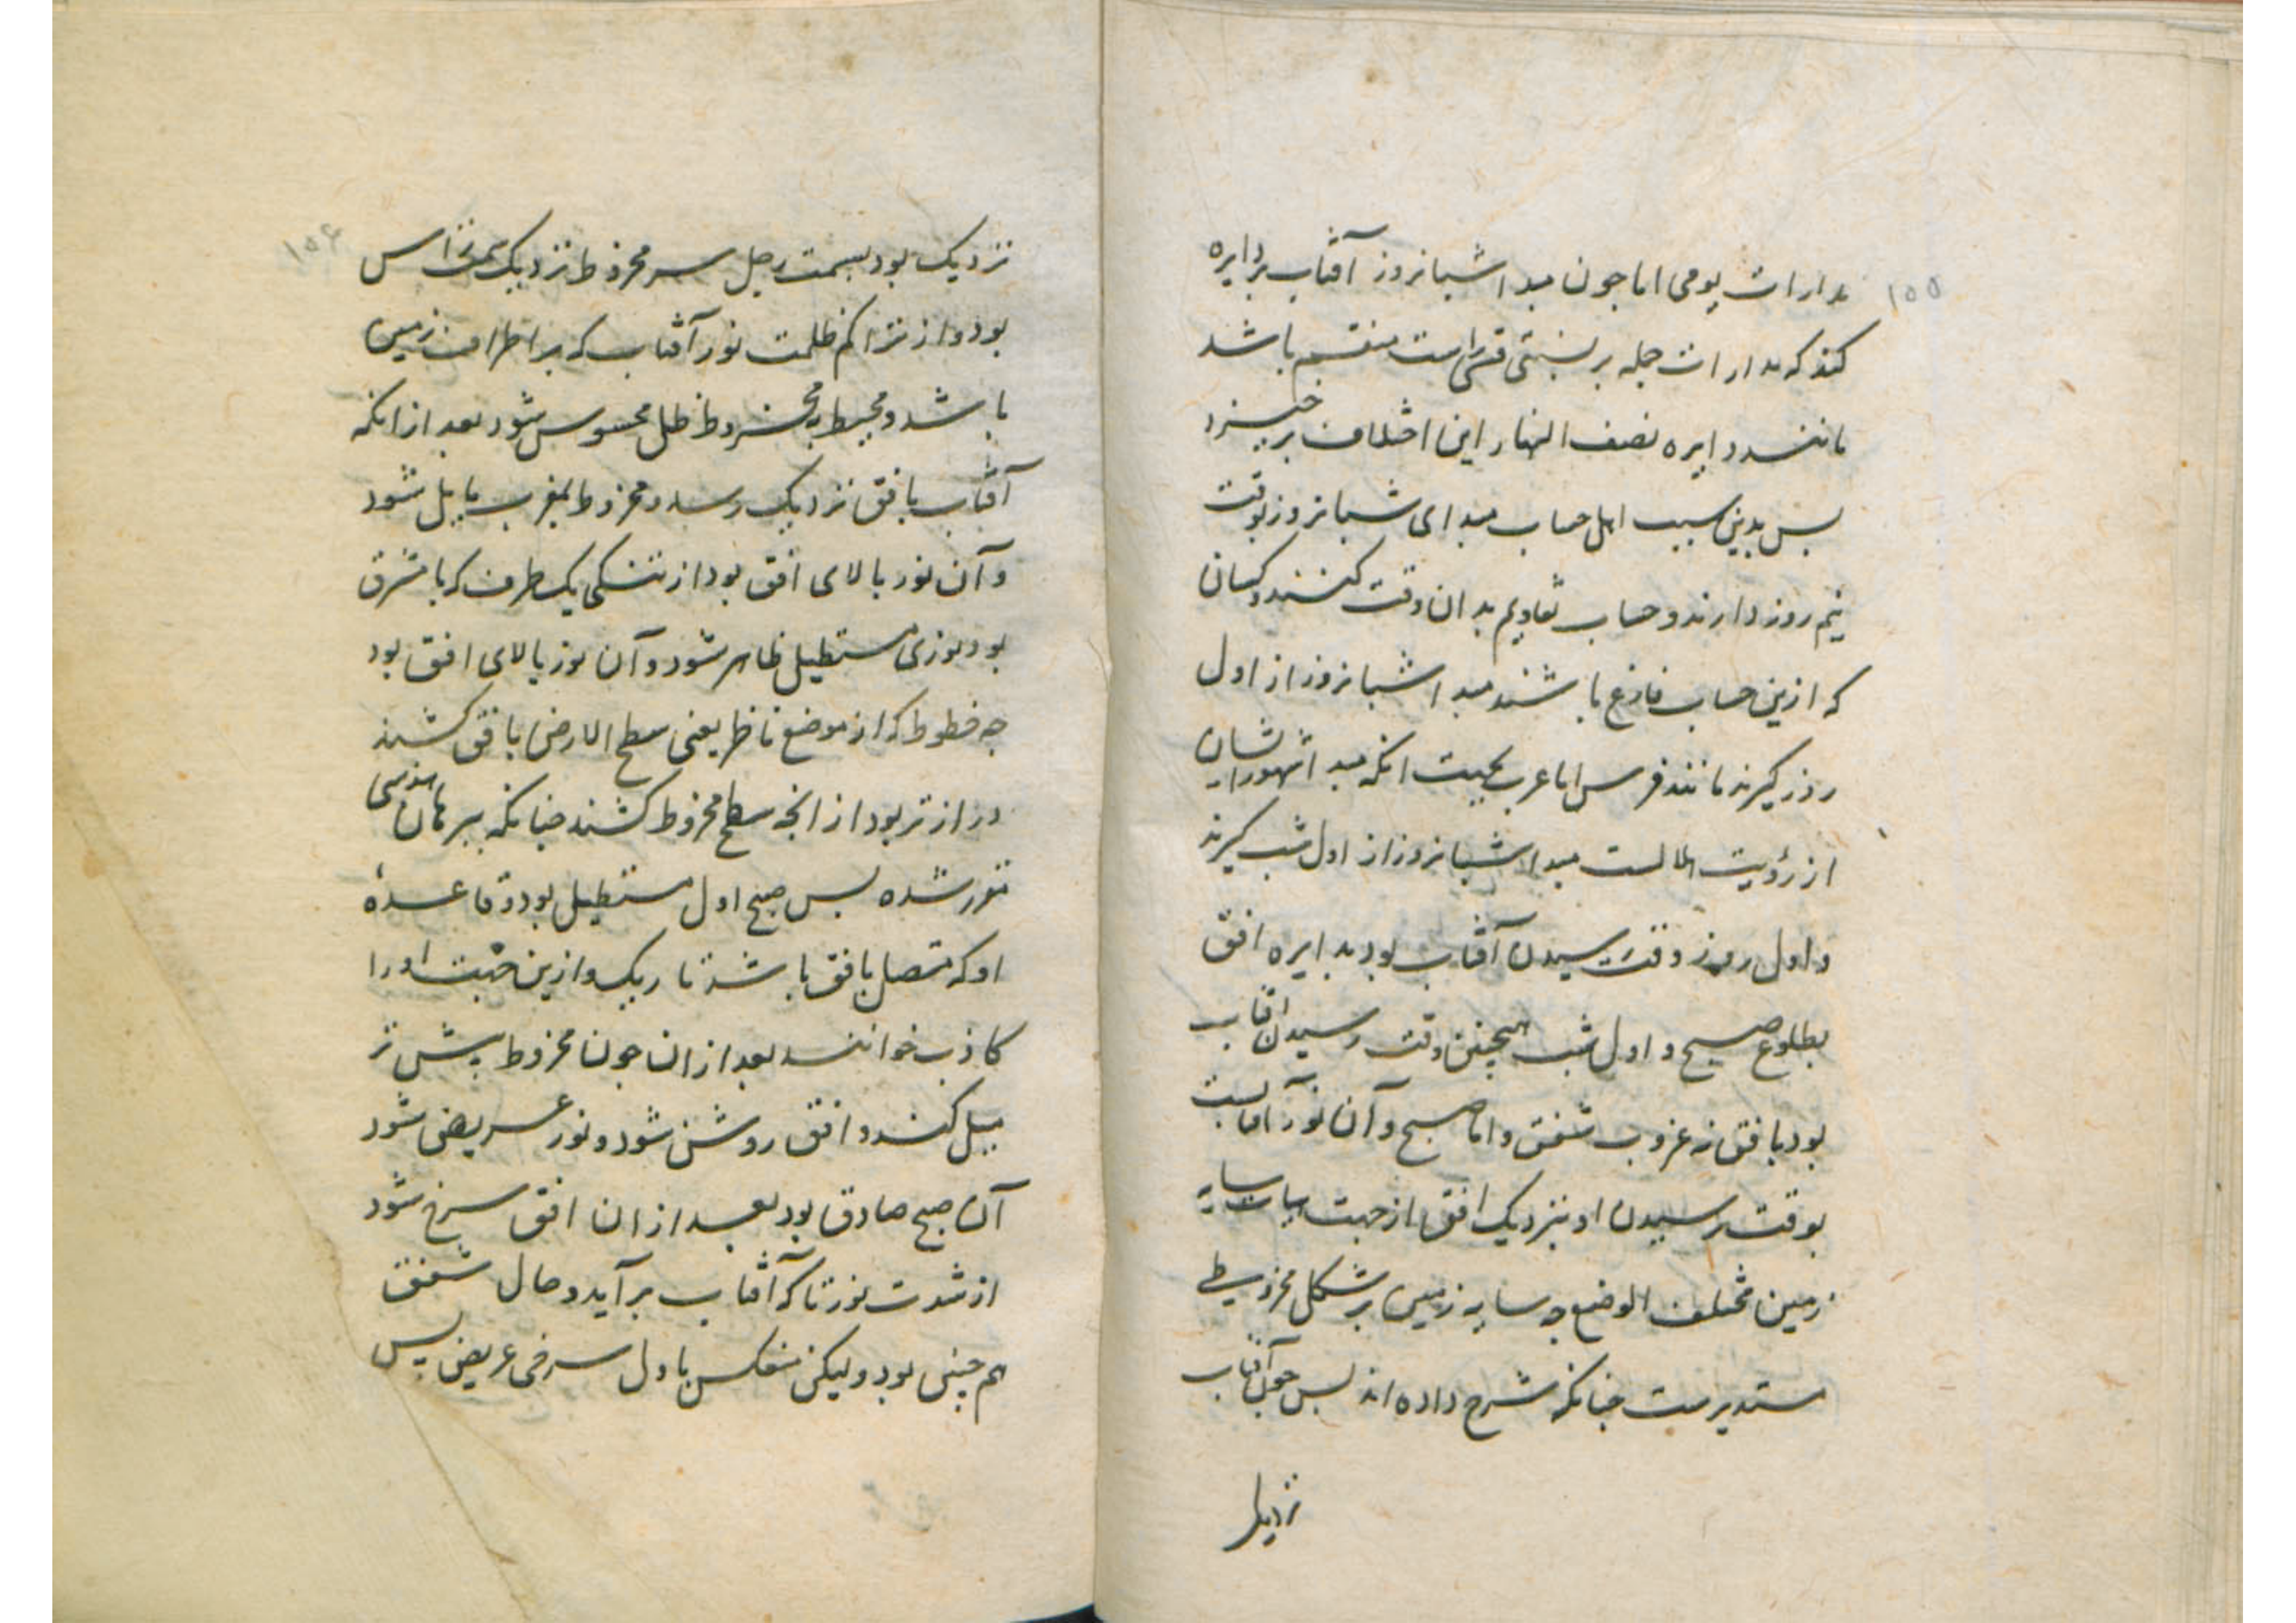 ۱۵۵
مدارات یومی اما جون مبدا شبانروز آفتاب بر دایره
کند که مدارات جمله بر نسبتی منقسم باشد
مانند دایره نصف النهار این اختلاف برخیزد
بس بدین سبب اهل حساب مبدای شبانروز بوقت
نیم روز دارند و حساب تقاویم بدان وقت کنند و کسانی
که ازین حساب فارغ باشند مبدا شبانروز از اول
روز کیرند مانند فرس اما عرب بجهت انکه مبدا شهور ایشان
از رؤیت اهلالست مبدا شبانروز از اول شب کیرند
و اول روز وقت رسیدن آفتاب بود بدایره افق
بطلوع صبح و اول شب همچنین وقت رسیدن افتاب
بود بافق نه غروب شفق و اما صبح و آن نور آفتابست
بوقت رسیدن او بنزدیک افق از جهت سایه
زمین مختلف الوضع جه سایه زمین بر شکل مخروطی
مستدیرست جنانکه شرح داده اند بس جون آفتاب
نزدیک
۱۵۶
نزدیک بود بسمت رجل سر مخروط نزدیک بسمت راس
بود و از تراکم ظلمت نور آفتاب که بر اطراف زمین
باشد و محیط بمخروط ظل محسوس شود بعد از انکه
آفتاب بافق نزدیک رسد و مخروط بمغرب مایل شود
و آن نور بالای افق بود از تنکی یک طرف که با مشرق
بود نوری مستطیل ظاهر شود و آن نور بالای افق بود
جه خطوط که از موضع ناظر یعنی سطح الارض بافق کشند
درازتر بود از انجه بسطح مخروط کشند جنانکه ببرهان هندسی
مقرر شده بس صبح اول مستطیل بود و قاعدهٔ
او که متصل بافق باشد تاریک و ازین جهت او را
کاذب خوانند بعد از ان جون مخروط بیش تر
میل کند و افق روشن شود و نور عریض شود
آن صبح صادق بود بعد از ان افق سرخ شود
از شدت نور تا که آفتاب بر آید و حال شفق
هم جنین بود ولیکن منعکس باول سرخی عریض بس